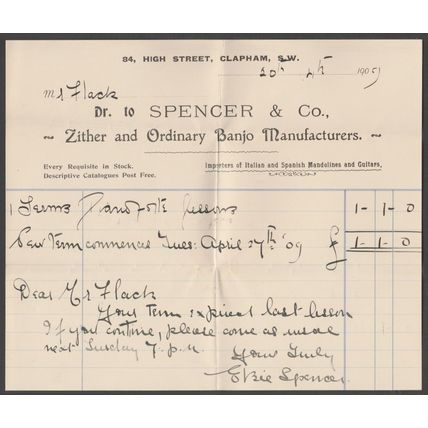 84, HIGH STREET, CLAPHAM, S.W.
20th 4th 1909
Mr Flack
Dr. to SPENCER & Co.,
~ Zither and Ordinary Banjo Manufacturers. ~
Every Requisite in Stock. Importers of Italian and Spanish Mandolines and Guitars,
Descriptive Catalogues Post Free.
1 Terms Pianoforte lessons 1-1-0
New Term commences Tues: April 27th 09 £ 1-1-0
Dear Mr Flack
Your Term expired last lesson
If you continue, please come as usual
next Tuesday 7 p.m. Yours Truly
Elsie Spencer.